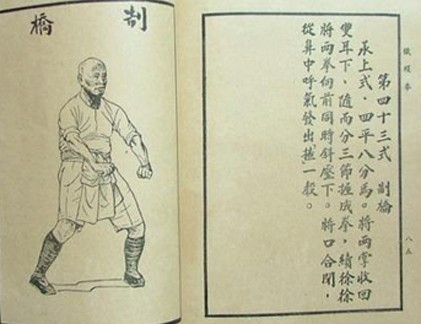 制橋
鐵線拳
第四十三式 制橋
承上式。四平八分馬。將兩掌收回
雙耳下。隨而分三節捶成拳，續徐徐
將兩拳向前同時斜壓下。將口合閉，
從鼻中呼氣發出「」一聲。
八五